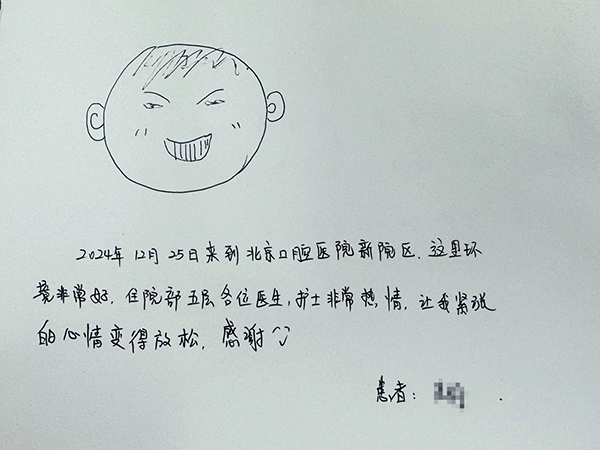 2024年12月25日来到北京口腔医院新院区.这里环
境非常好.住院部五层各位医生,护士非常热情,让我紧张
的心情变得放松,感谢
患者: